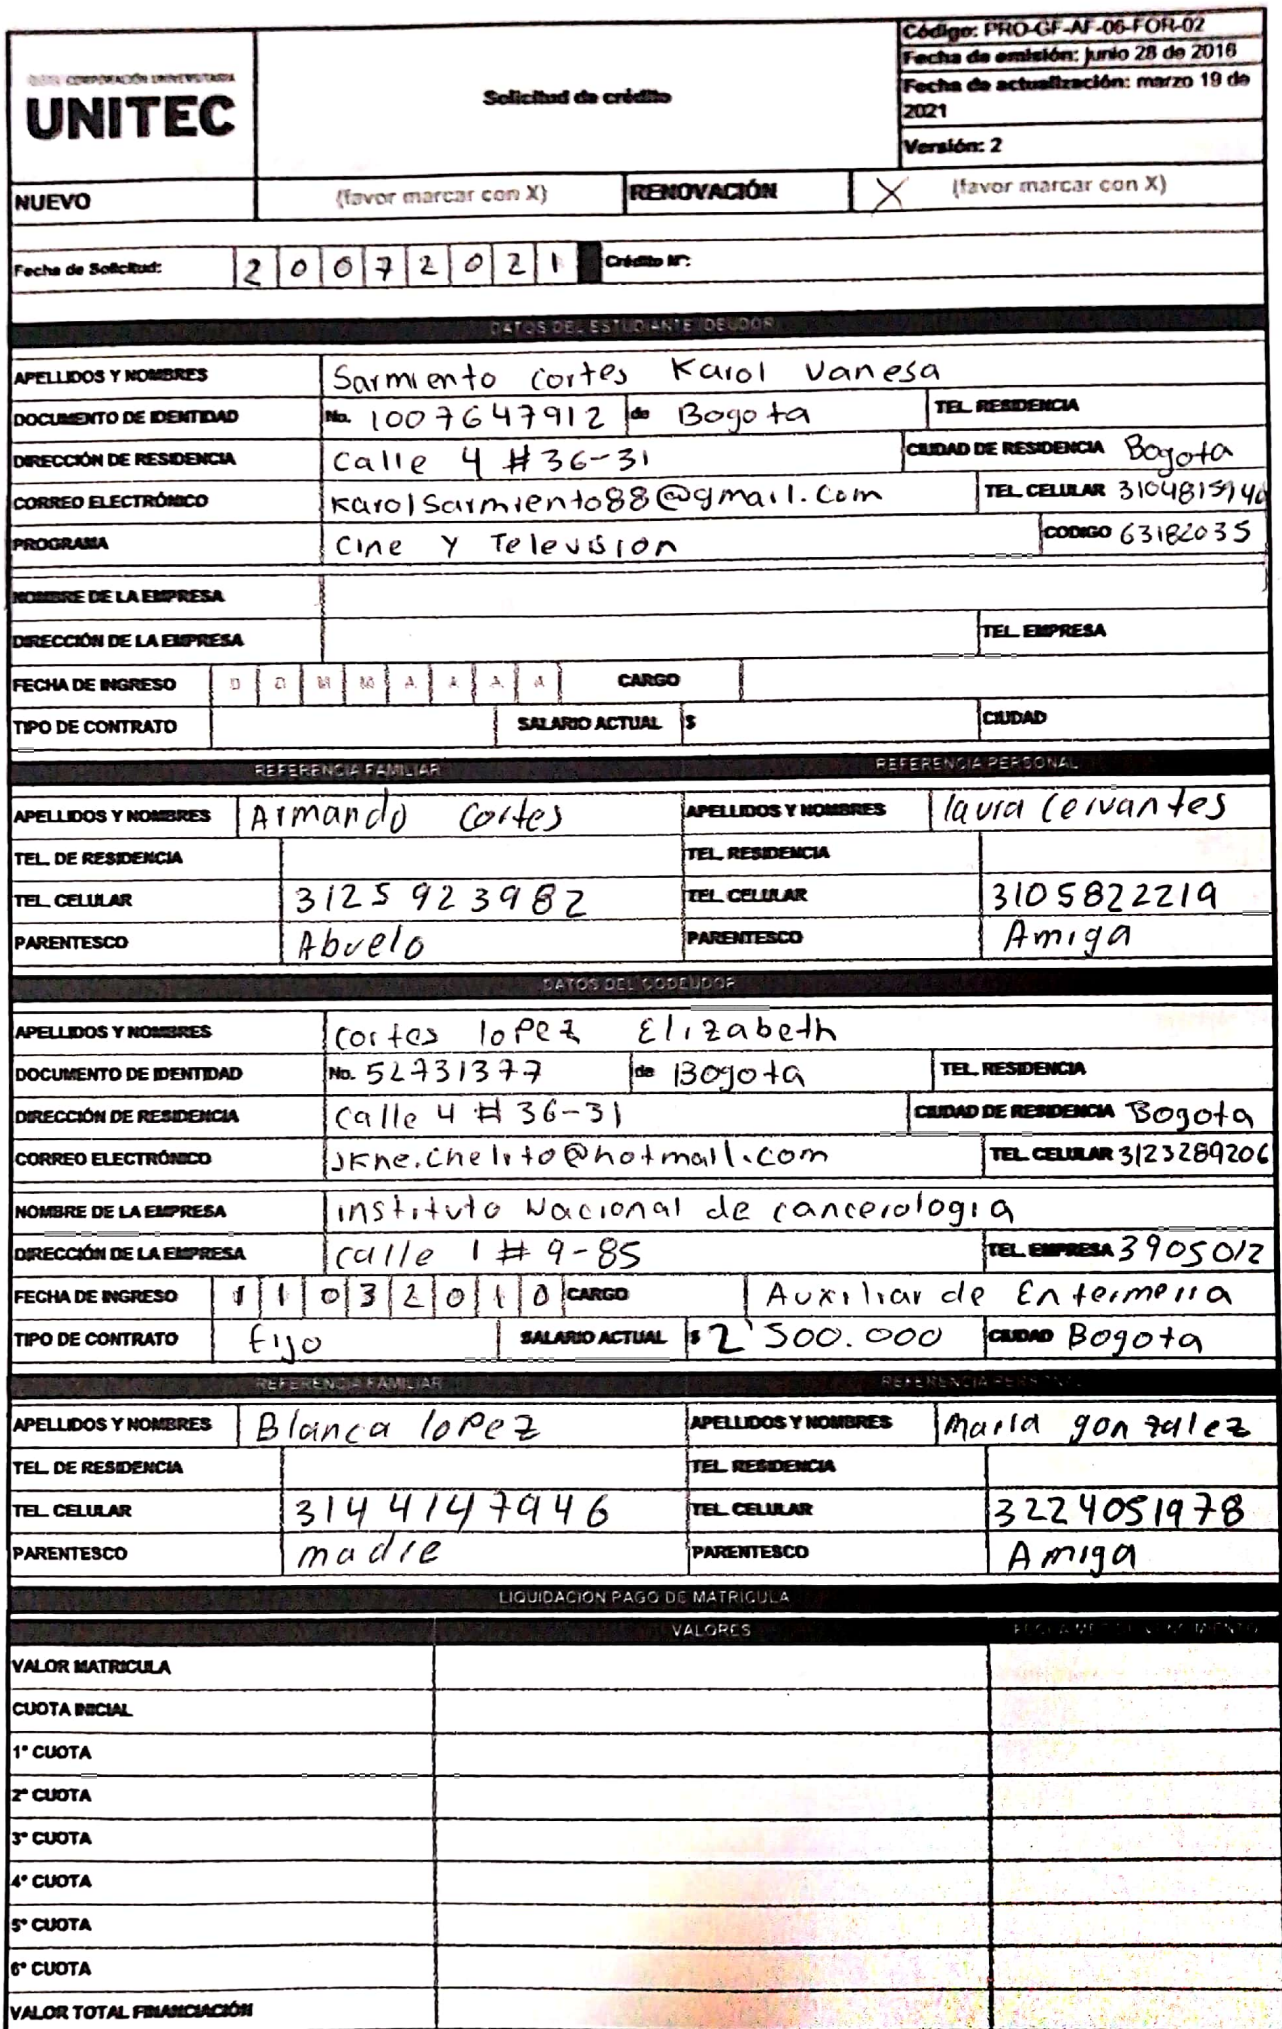 CORPORACIÓN UNIVERSITARIA
UNITEC
Solicitud de crédito
Código: PRO-GF-AF-06-FOR-02
Fecha de emisión: junio 28 de 2016
Fecha de actualización: marzo 19 de
2021
Versión: 2
NUEVO (favor marcar con X) RENOVACIÓN X (favor marcar con X)
Fecha de Solicitud: 2 0 0 7 2 0 2 1 Crédito N°:
DATOS DEL ESTUDIANTE (DEUDOR
APELLIDOS Y NOMBRES Sarmiento Cortes Karol Vanesa
DOCUMENTO DE IDENTIDAD No. 1007647912 de Bogota TEL. RESIDENCIA
DIRECCIÓN DE RESIDENCIA Calle 4 # 36-31 CIUDAD DE RESIDENCIA Bogota
CORREO ELECTRÓNICO KarolSarmiento88@gmail.com TEL. CELULAR
PROGRAMA Cine Y Television CODIGO 63182035
NOMBRE DE LA EMPRESA
DIRECCIÓN DE LA EMPRESA TEL. EMPRESA
FECHA DE INGRESO D D M M A A A A CARGO
TIPO DE CONTRATO SALARIO ACTUAL $ CIUDAD
REFERENCIA FAMILIAR REFERENCIA PERSONAL
APELLIDOS Y NOMBRES Armando Cortes APELLIDOS Y NOMBRES laura Cervantes
TEL. DE RESIDENCIA TEL. RESIDENCIA
TEL. CELULAR 3125923982 TEL. CELULAR 3105822219
PARENTESCO Abuelo PARENTESCO Amiga
DATOS DEL CODEUDOR
APELLIDOS Y NOMBRES Cortes lopez Elizabeth
DOCUMENTO DE IDENTIDAD No. 52731377 de Bogota TEL. RESIDENCIA
DIRECCIÓN DE RESIDENCIA Calle 4 # 36-31 CIUDAD DE RESIDENCIA Bogota
CORREO ELECTRÓNICO jkne.chelito@hotmail.com TEL. CELULAR 3123289206
NOMBRE DE LA EMPRESA instituto Nacional de cancerologia
DIRECCIÓN DE LA EMPRESA calle 1 # 9-85 TEL. EMPRESA 3905012
FECHA DE INGRESO 1 1 0 3 2 0 1 0 CARGO Auxiliar de Enfermeria
TIPO DE CONTRATO fijo SALARIO ACTUAL $ 2'500.000 CIUDAD Bogota
REFERENCIA FAMILIAR REFERENCIA PERSONAL
APELLIDOS Y NOMBRES Blanca lopez APELLIDOS Y NOMBRES Maria gonzalez
TEL. DE RESIDENCIA TEL. RESIDENCIA
TEL. CELULAR 3144147946 TEL. CELULAR 3224051978
PARENTESCO madre PARENTESCO Amiga
LIQUIDACION PAGO DE MATRICULA
VALORES
VALOR MATRICULA
CUOTA INICIAL
1° CUOTA
2° CUOTA
3° CUOTA
4° CUOTA
5° CUOTA
6° CUOTA
VALOR TOTAL FINANCIACIÓN